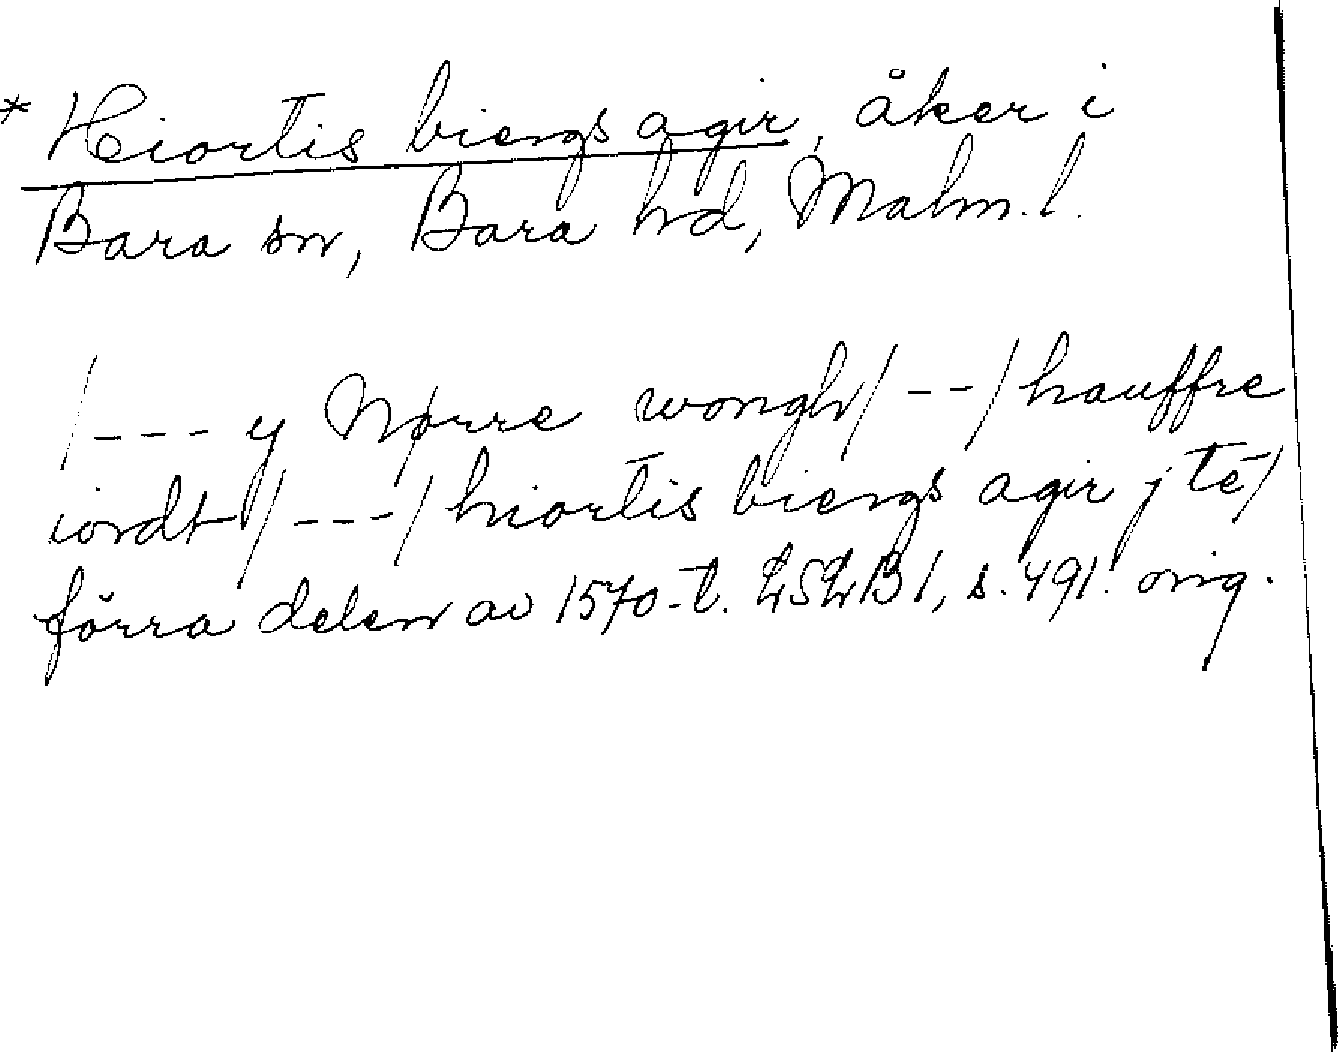 * Hiortis biergs agir, åker i
Bara sn, Bara hd, Malm. l.
/--- y Nørre wongh/--/hauffre
iordt/---/hiortis biergs agir j te/
förra delen av 1570-t. LSLB1, s. 491. orig.